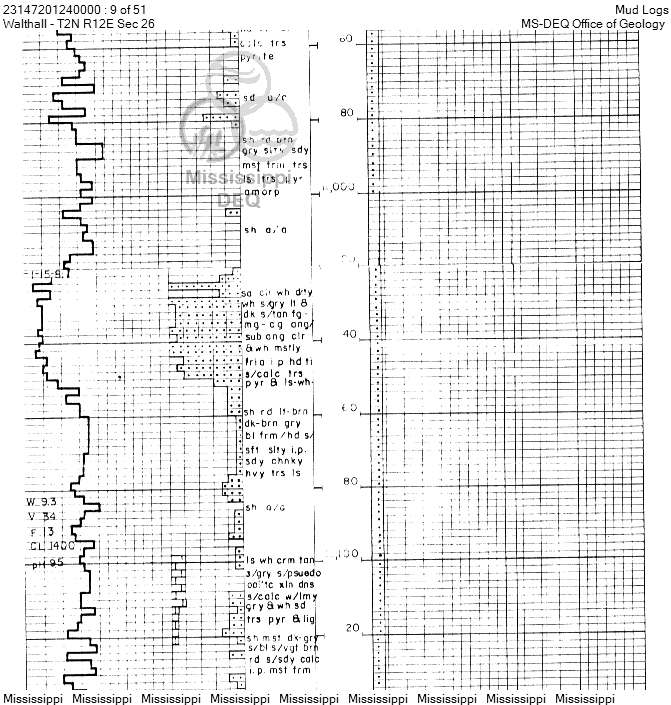 23147201240000 : 9 of 51
Mud Logs
Walthall - T2N R12E Sec 26
MS-DEQ Office of Geology
calc trs
pyrite
60
sd a/a
80
sh rd brn
gry slty sdy
mst frm trs
ls trs pyr
amorp
Mississippi
DEQ
,000
sh a/a
1-15-8
sd clr wh dty
wh s/gry lt &
dk s/tan fg-
mg-cg ang/
sub ang clr
& wh mstly
fria i.p hd ti
s/calc trs
pyr & ls-wh-
40
sh rd lt-brn
dk-brn gry
bl frm/hd s/
sft slty i.p.
sdy chnky
hvy trs ls
60
80
sh a/a
W 9.3
V 34
F 13
CL 1400
pH 9.5
,100
ls wh crm tan
s/gry s/psuedo
oolitc xln dns
s/calc w/lmy
gry & wh sd
trs pyr & lig
20
sh mst dk-gry
s/bl s/vgt brn
rd s/sdy calc
i.p. mst frm
Mississippi Mississippi Mississippi Mississippi Mississippi Mississippi Mississippi Mississippi Mississippi